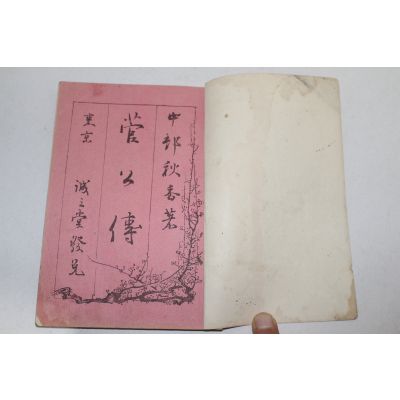 中邨秋香著
菅公傳
東京
誠之堂發兌